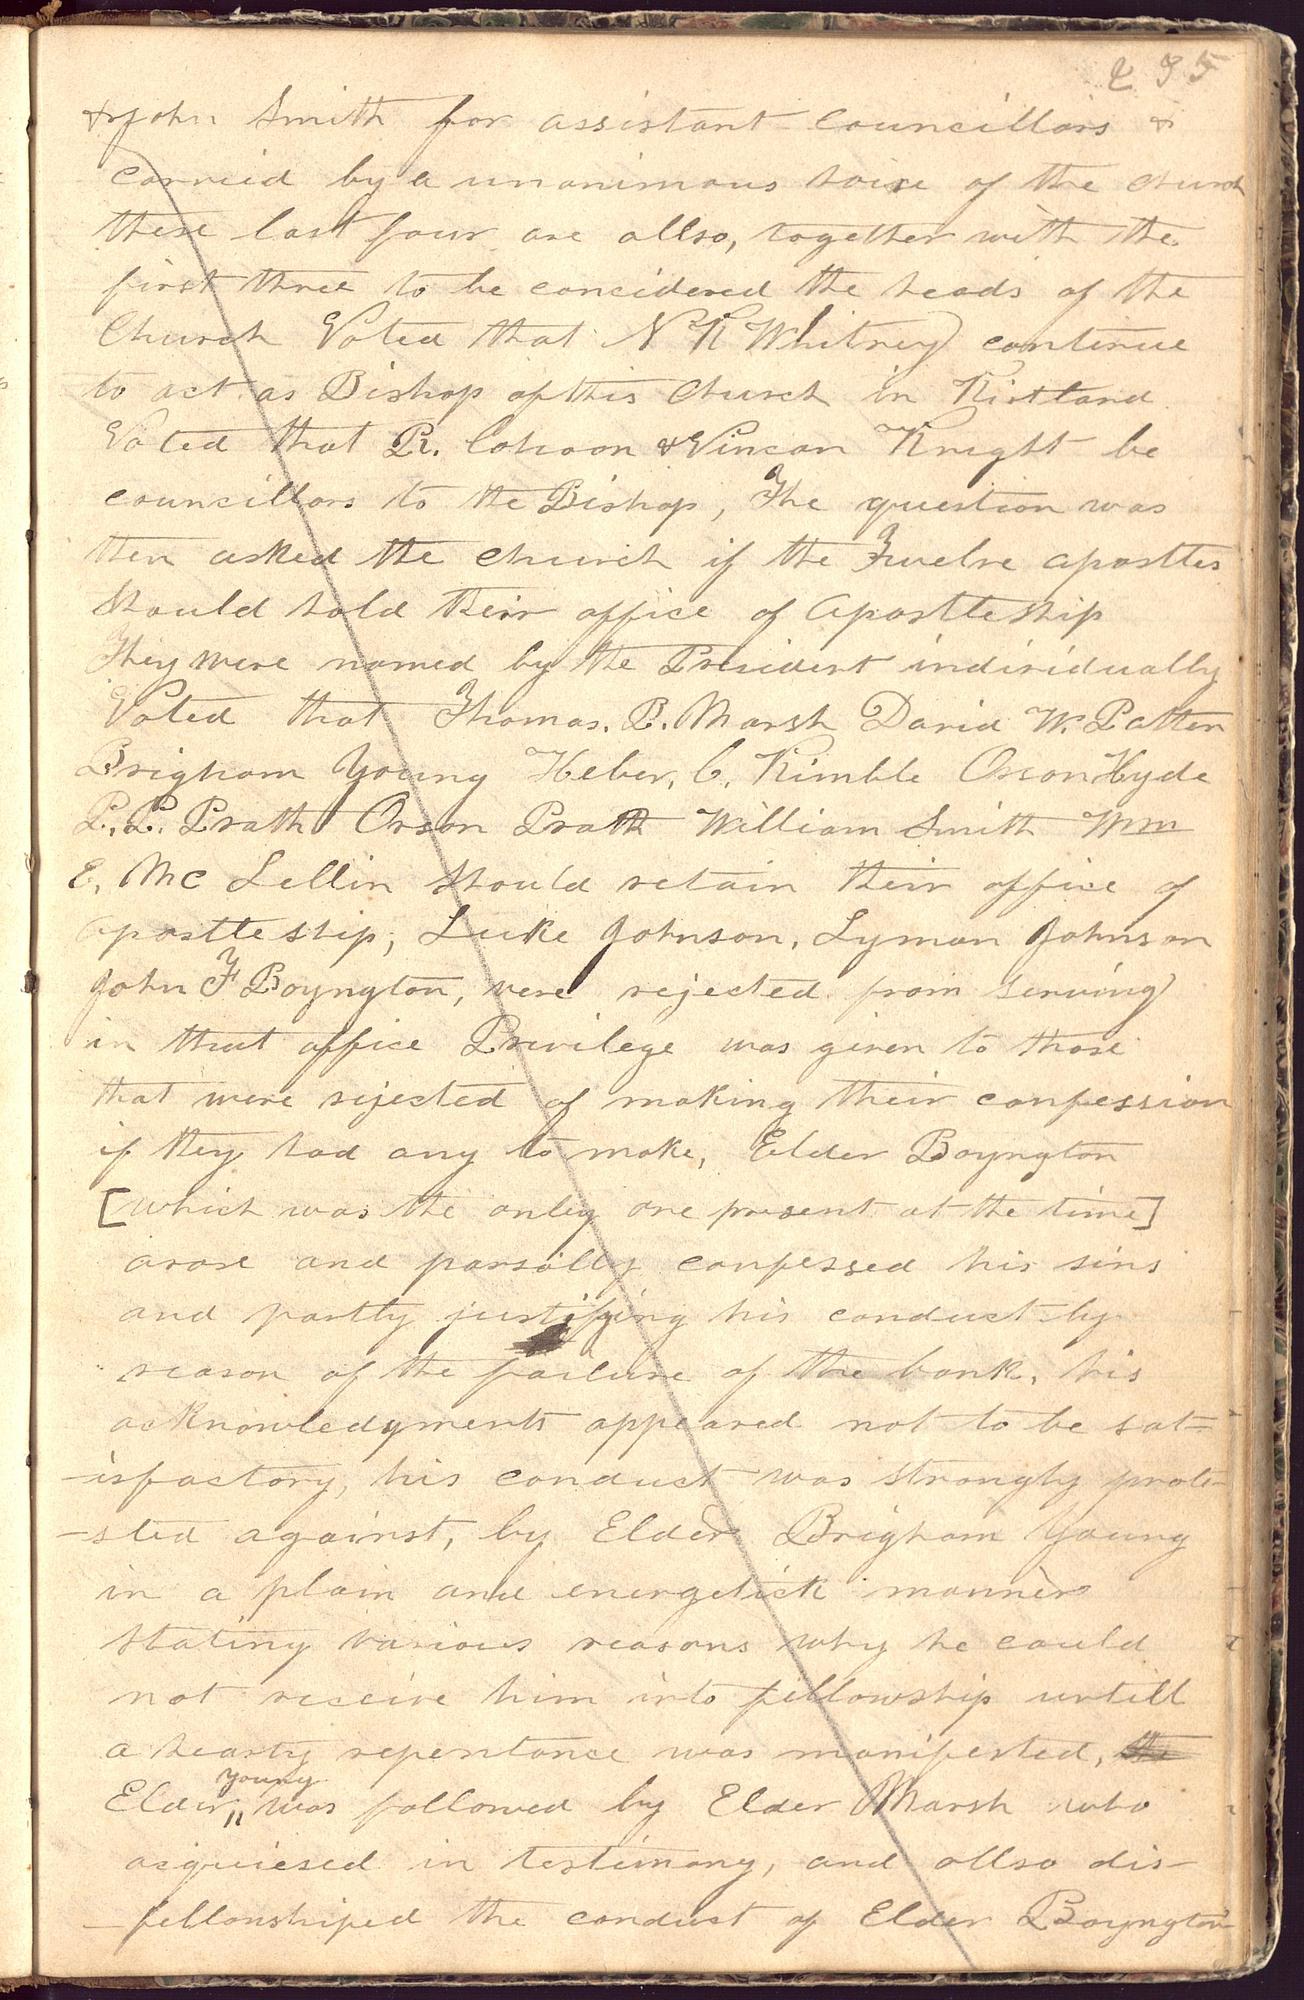 235
& John Smith for assistant Councillors &
carried by a unanimous voice of the church
these last four are allso, together with the
first three to be concidered the heads of the
Church Voted that N K Whitney continue
to act as Bishop of this Church in Kirtland
Voted that R. Cohoon & Vincan Knight be
councillors to the Bishop, The question was
then asked the church if the Twelve apostles
should hold their office of Apostleship
They were named by the President individually
Voted that Thomas. B. Marsh David W. Patten
Brigham Young Heber, C. Kimble Orson Hyde
P. P. Pratt Orson Pratt William Smith Wm
E, Mc Lellin should retain their office of
apostleship; Luke Johnson, Lyman Johnson
John F Boyngton, were rejected from serving
in that office Privilege was given to those
that were rejected of making their confession
if they had any to make, Elder Boyngton
[which was the only one present at the time]
arose and parsally confessed his sins
and partly justifying his conduct by
reason of the failure of the bank, his
acknowledgments appeared not to be sat=
-isfactory, his conduct was strongly prote-
-sted against, by Elder Brigham Young
in a plain and energetick manner
stating various reasons why he could
not receive him into fellowship untill
a hearty repentance was manifested, the
young
Elder " was followed by Elder Marsh who
acquiesed in testimony, and allso dis-
-fellowshiped the conduct of Elder Boyngton